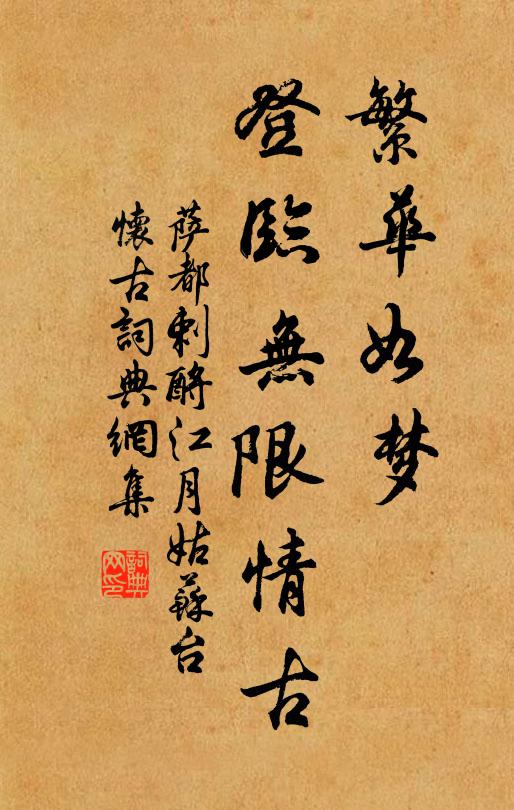 繁華如梦
登臨無限情古
萨都剌酹江月姑蘇台
懷古詞典網集
詞典网印